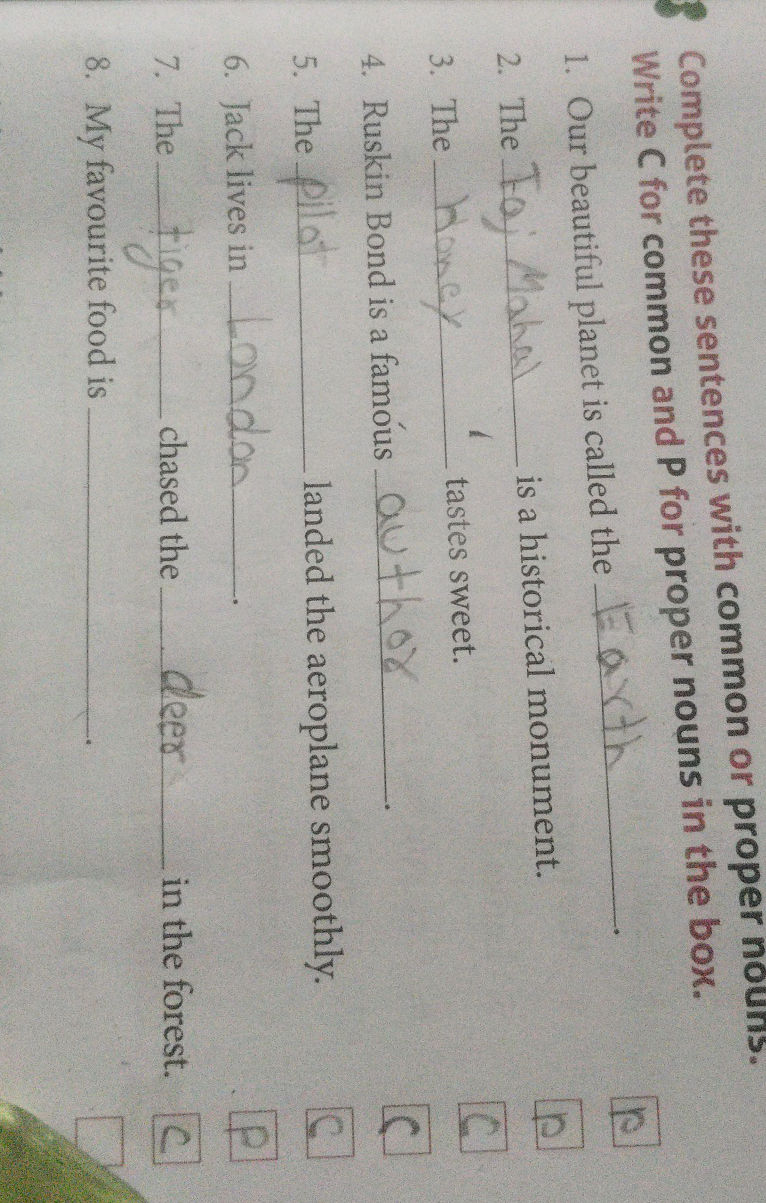 Complete these sentences with common or proper nouns.
Write C for common and P for proper nouns in the box.
1. Our beautiful planet is called the Earth. P
2. The Taj Mahal is a historical monument. P
3. The Honey tastes sweet. C
4. Ruskin Bond is a famous author. C
5. The pilot landed the aeroplane smoothly. C
6. Jack lives in London. P
7. The tiger chased the deer in the forest. C
8. My favourite food is ____.